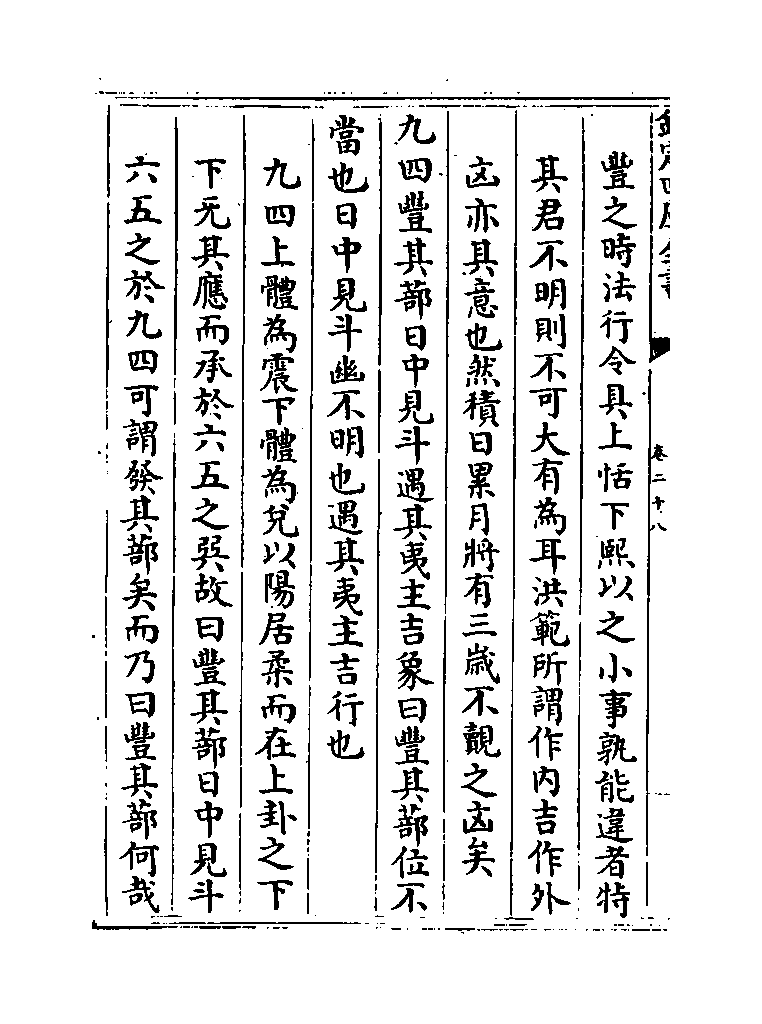 欽定四庫全書
卷二十八
豐之時法行令具上恬下熙以之小事孰能違者特
其君不明則不可大有為耳洪範所謂作内吉作外
凶亦其意也然積日累月將有三歳不觀之凶矣
九四豐其蔀日中見斗遇其夷主吉象曰豐其蔀位不
當也日中見斗幽不明也遇其夷主吉行也
九四上體為震下體為兌以陽居柔而在上卦之下
下无其應而承於六五之巽故曰豐其蔀日中見斗
六五之於九四可謂發其蔀矣而乃曰豐其蔀何哉